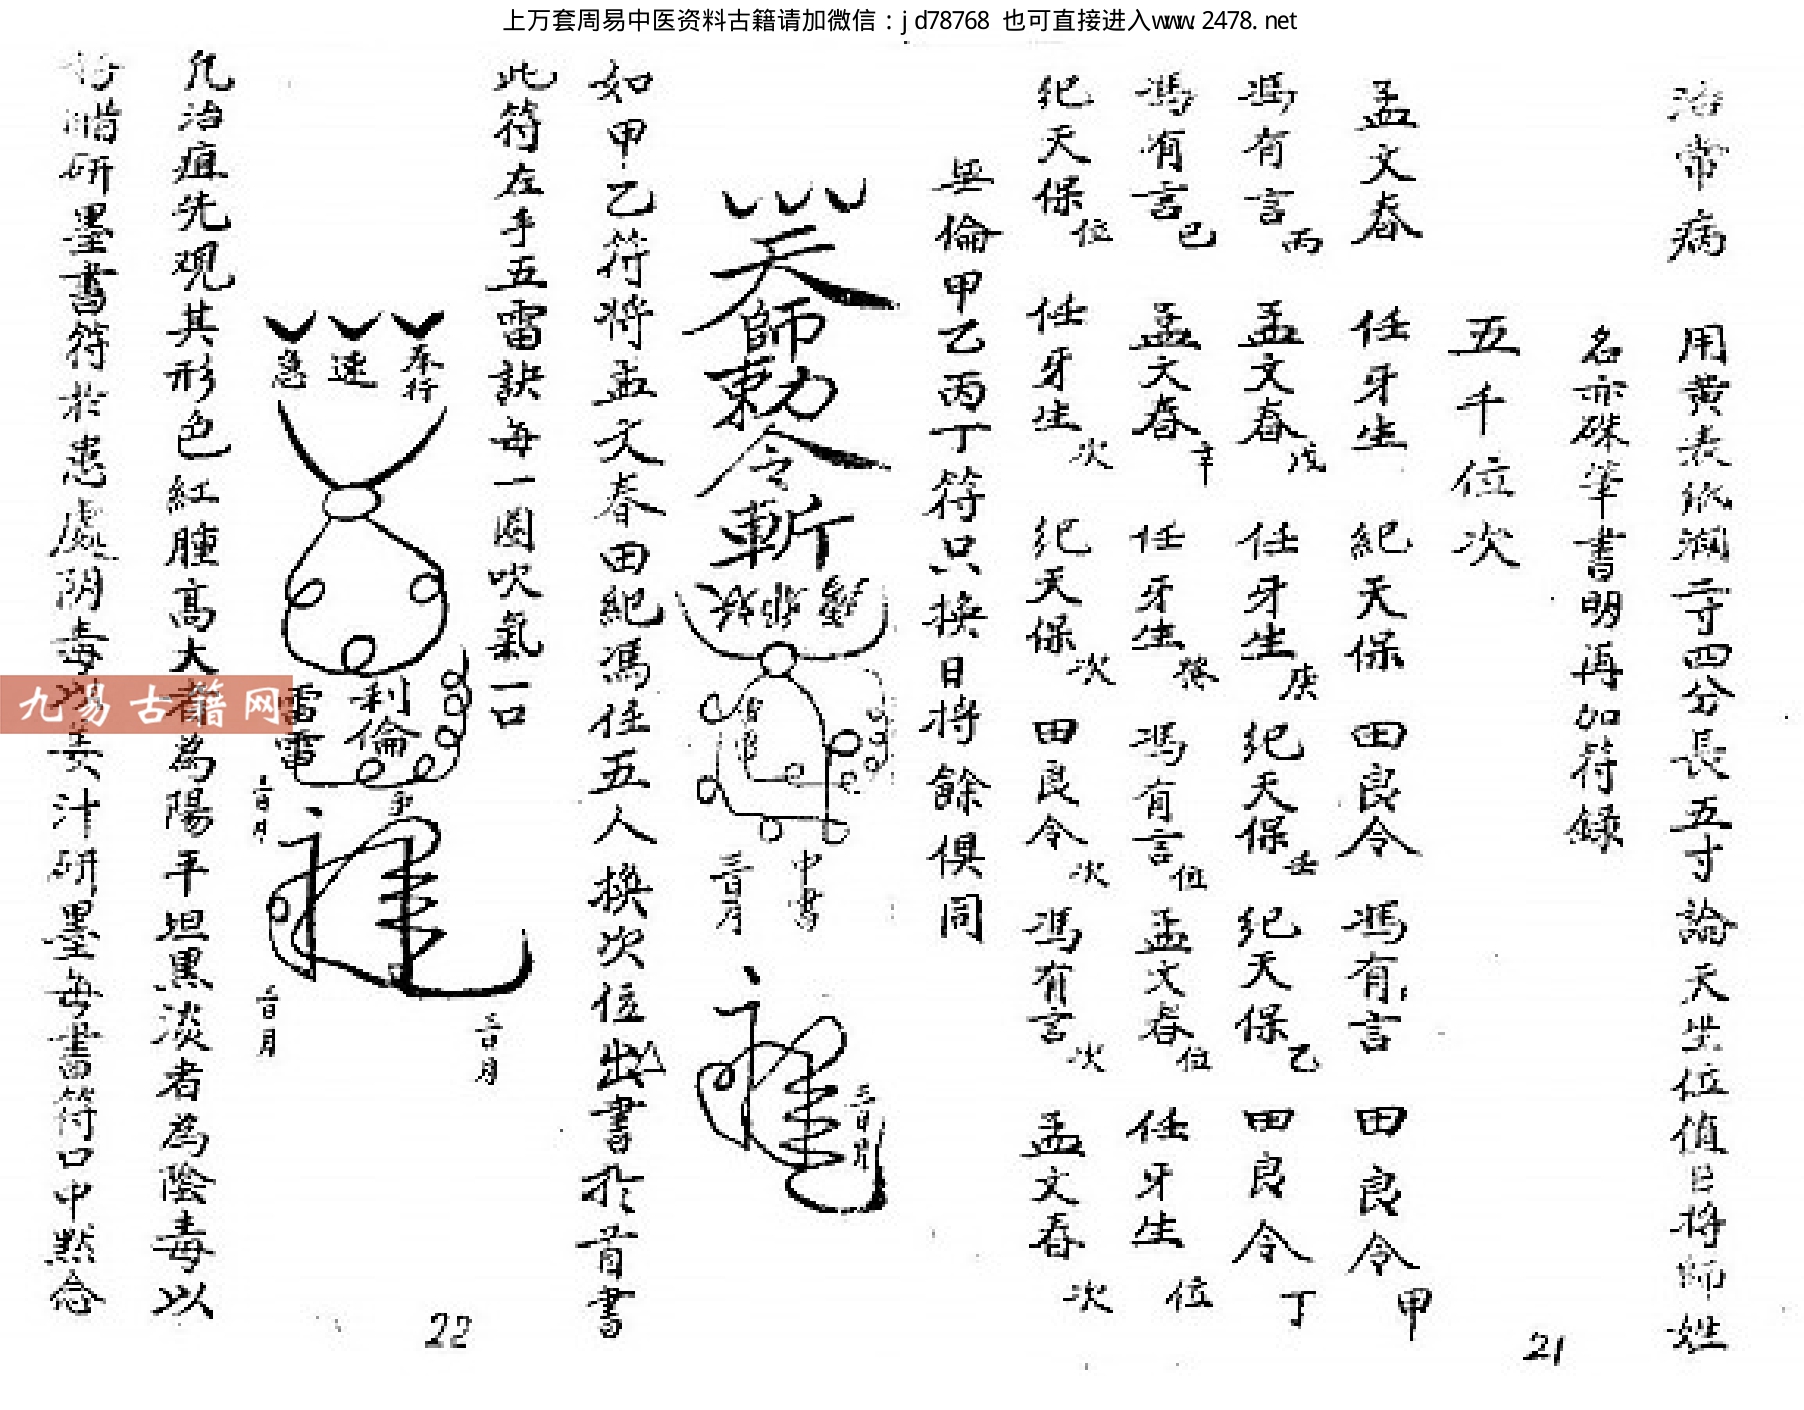 上万套周易中医资料古籍请加微信：jd78768 也可直接进入www.2478.net
治常病 用黄表纸濶二寸四分長五寸論天坐位值日将師姓
名亦硃筆書明再加符録
五千位次
孟文春 任牙生 紀天保 田良令 馮有言 田良令甲
馮有言丙 孟文春戊 任牙生庚 紀天保壬 紀天保乙 田良令丁
馮有言己 孟文春辛 任牙生癸 馮有言位 孟文春位 任牙生位
紀天保位 任牙生次 紀天保次 田良令次 馮有言次 孟文春次
無倫甲乙丙丁符只换日将餘俱同
天師勅令斬
中書
三日月
三日月
如甲乙符将孟文春田紀馮任五人换次位出書於首書
此符左手五雷訣每一圈吹氣一口
奉行
速
急
利倫
雷雷
三日月
三日月
三日月
凡治疽先观其形色紅腫高大者為陽平坦黑淡者為陰毒以
醋研墨書符於患處阴毒以姜汁研墨每書符口中黙念
九易古籍网
21
22